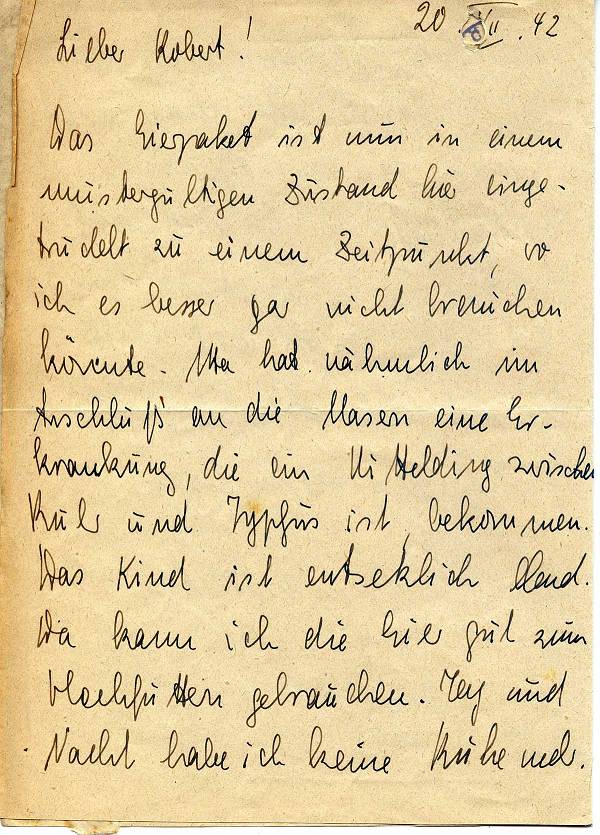 20. .42
Lieber Robert!
Das Eierpaket ist nun in einem
mustergültigen Zustand hier einge-
trudelt zu einem Zeitpunkt, wo
ich es besser gar nicht brauchen
könnte. Uta hat nähmlich im
Anschluß an die Masern eine Er-
krankung, die ein Mittelding zwischen
Ruhr und Typhus ist, bekommen.
Das Kind ist entsetzlich elend.
Da kann ich die Eier gut zum
Hochfüttern gebrauchen. Tag und
Nacht habe ich keine Ruhe mehr.